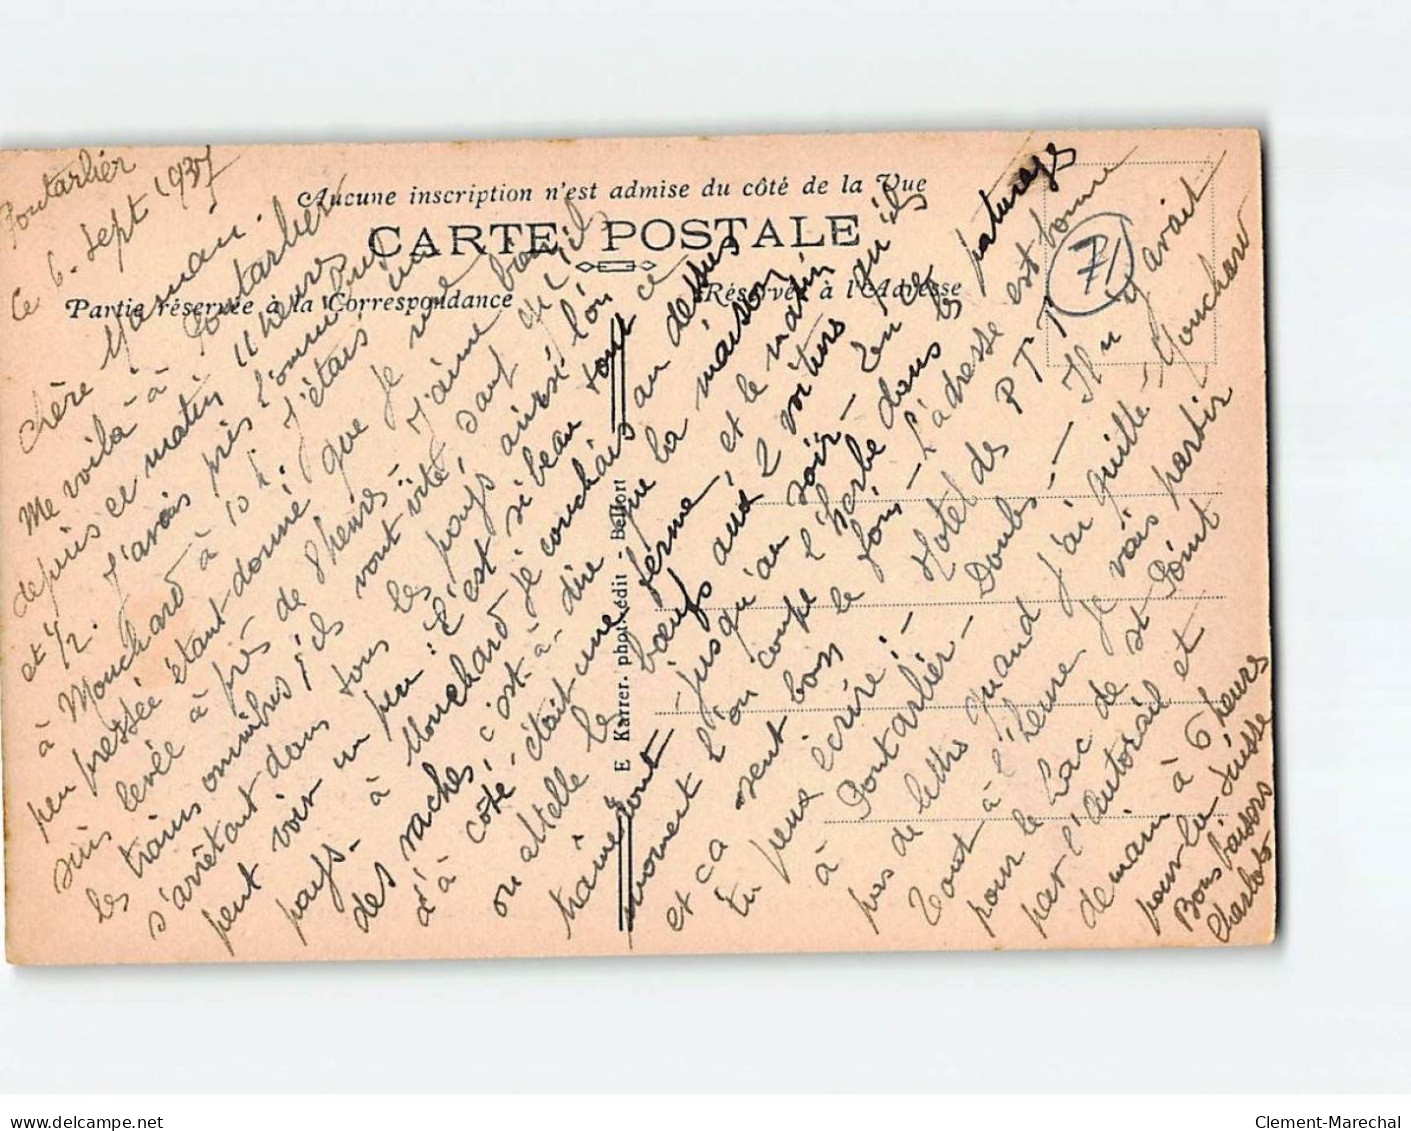 Pontarlier
le 6. sept 1937
Chère Maman.
Me voilà à Pontarlier
depuis ce matin 11 heures
et 1/2. J'avais pris l'omnibus
à Mouchard à 10 h. J'étais un
peu pressée étant donné que je me
suis levée à près de 8 heures.. J'aime bien
les trains omnibus, ils vont vite, sauf qu'ils
s'arrêtant dans tous les pays, ainsi l'on
peut voir un peu : C'est si beau tout ce
pays. à Mouchard je couchais au dessus
des vaches, c'est-à-dire que la maison
d'à côté, était une ferme, et le matin
on attelle les bœufs aux 2 voitures qu'ils
traînent jusqu'au soir - En ce
moment l'on coupe l'herbe dans les paturages
et ça sent bon le foin - L'adresse est bonne
tu peux écrire :- Hotel des P T T
à Pontarlier - Doubs - Il n'y avait
pas de lettre quand j'ai quitté - Mouchard
Tout à l'heure je vais partir
pour le Lac de st Point
par l'Autorail et
demain à 6 heures
pour la Suisse
Bons baisers
Charlot
71
Aucune inscription n'est admise du côté de la Vue
CARTE POSTALE
Partie réservée à la Correspondance
Réservée à l'Adresse
E Karrer. phot.-édit - Belfort
www.delcampe.net
Clement-Marechal